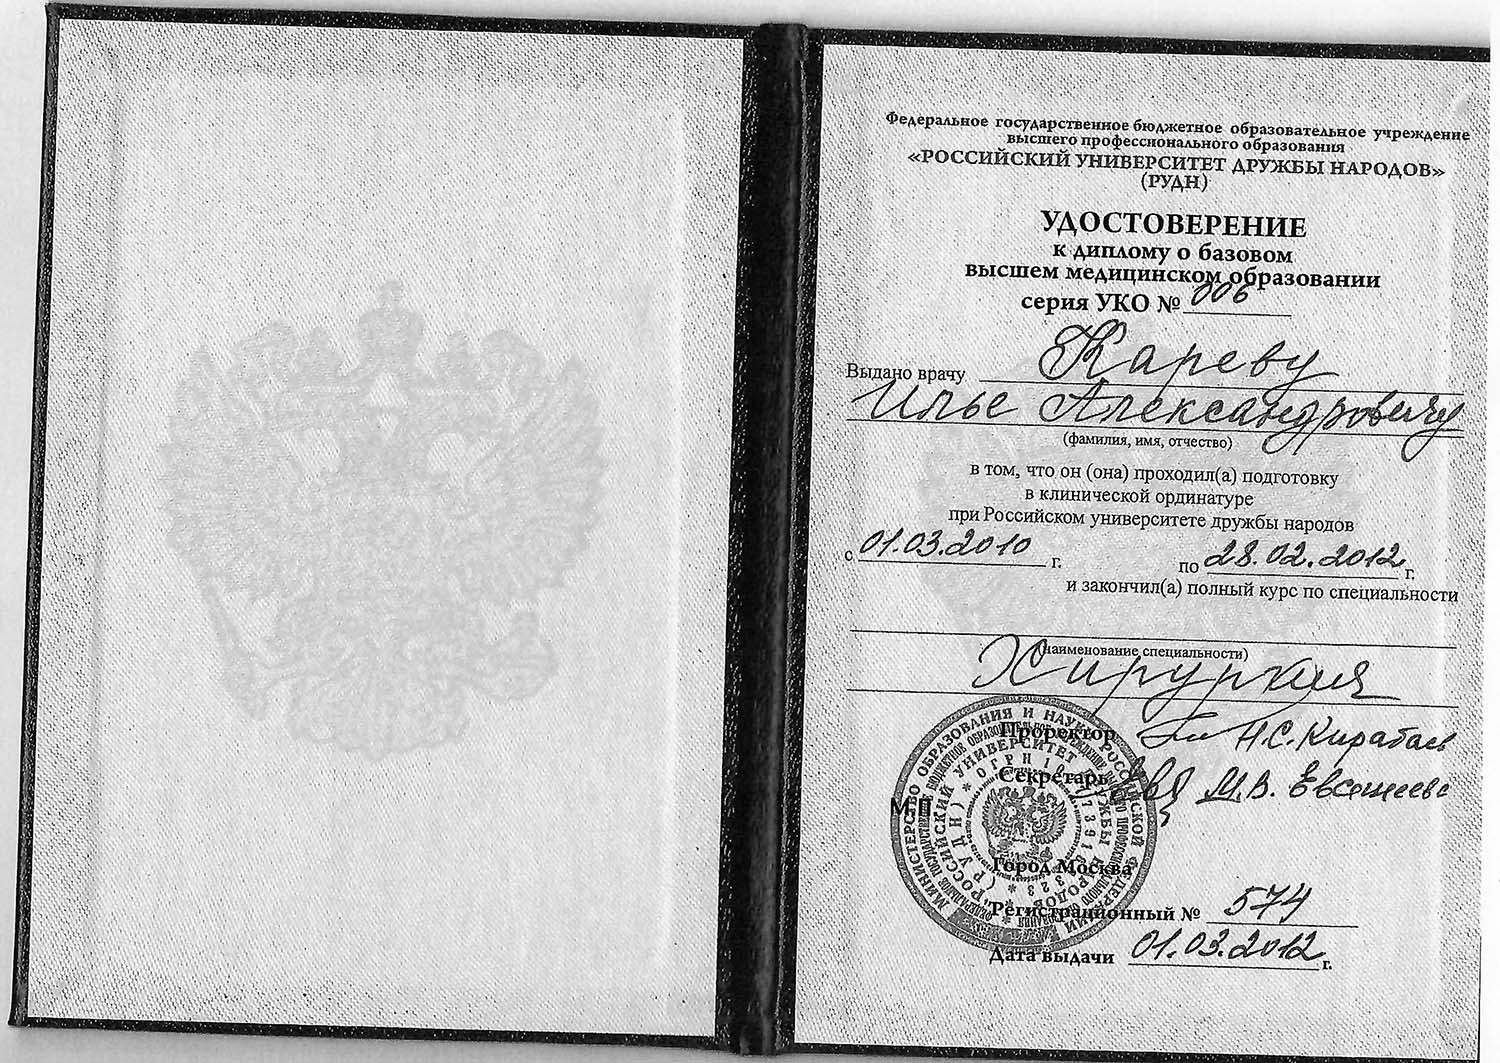 Федеральное государственное бюджетное образовательное учреждение
высшего профессионального образования
«РОССИЙСКИЙ УНИВЕРСИТЕТ ДРУЖБЫ НАРОДОВ»
(РУДН)
УДОСТОВЕРЕНИЕ
к диплому о базовом
высшем медицинском образовании
серия УКО № 006
Выдано врачу Кареву
Илье Александровичу
(фамилия, имя, отчество)
в том, что он (она) проходил(а) подготовку
в клинической ординатуре
при Российском университете дружбы народов
с 01.03.2010 г. по 28.02.2012 г.
и закончил(а) полный курс по специальности
(наименование специальности)
Хирургия
Проректор Н.С. Кирабаев
Секретарь М.В.
М.П.
Город Москва
Регистрационный № 574
Дата выдачи 01.03.2012 г.
МИНИСТЕРСТВО ОБРАЗОВАНИЯ И НАУКИ РОССИЙСКОЙ ФЕДЕРАЦИИ
"РОССИЙСКИЙ УНИВЕРСИТЕТ ДРУЖБЫ НАРОДОВ"
(РУДН) * ОГРН